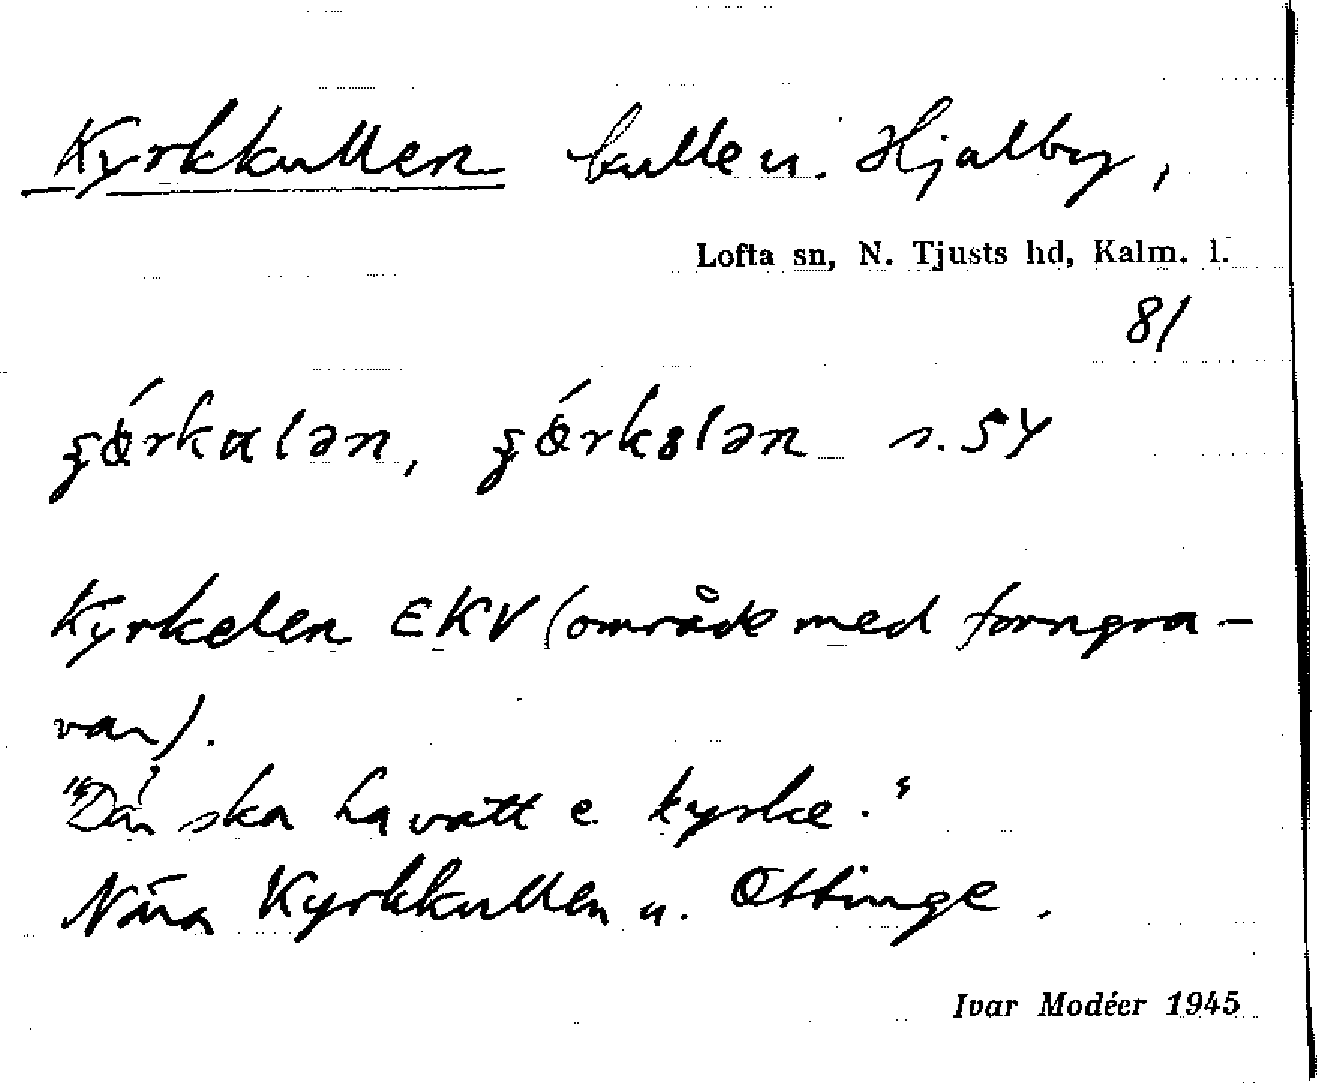 Kyrkkullen kulle u. Hjalby,
Lofta sn, N. Tjusts hd, Kalm. l.
81
s. 54
Kyrkelen EKV (område med forngra-
var).
"Där ska ha vatt e kyrke."
Nära Kyrkkullen u. Ottinge.
Ivar Modéer 1945